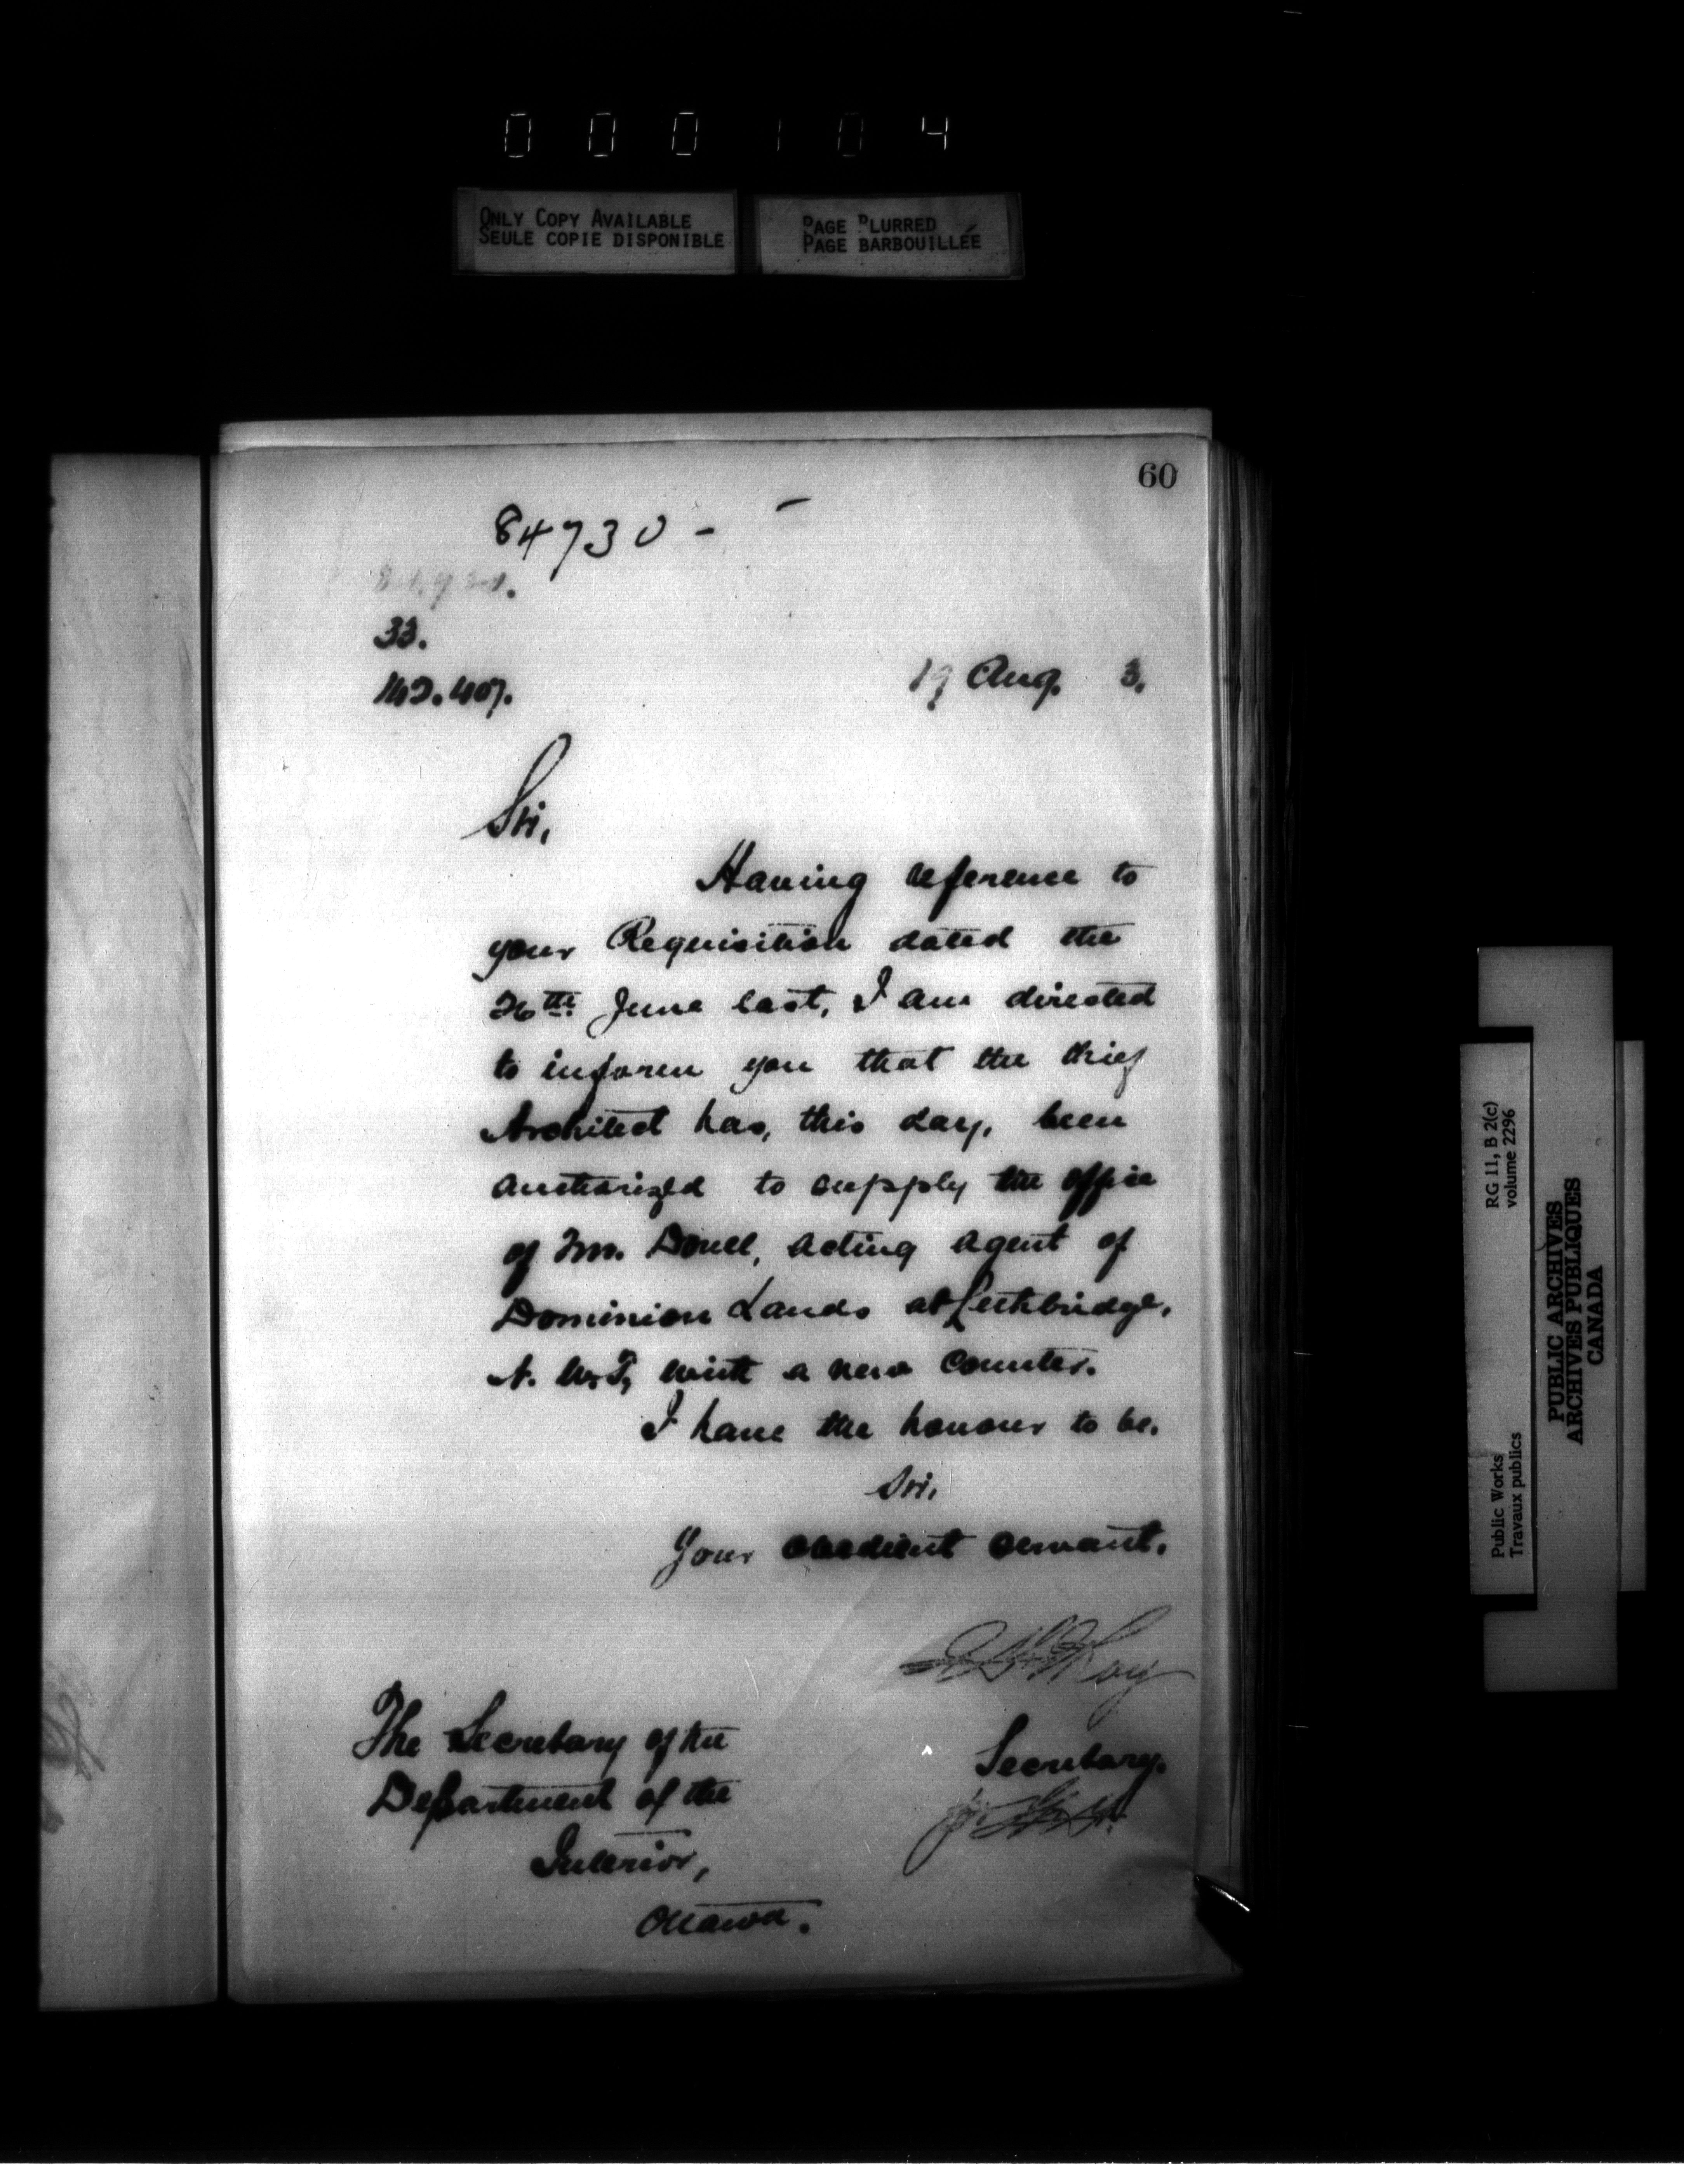 000104
ONLY COPY AVAILABLE
SEULE COPIE DISPONIBLE
PAGE BLURRED
PAGE BARBOUILLÉE
60
84730 -
33.
142.407.
19 Aug. 3.
Sir,
Having reference to
your Requisition dated the
26th June last, I am directed
to inform you that the Chief
Architect has, this day, been
authorized to supply the office
of Mr. acting agent of
Dominion Lands at Lethbridge,
N. W. T, with a new Counter.
I have the honour to be,
Sir,
Your obedient servant,
Secretary.
The Secretary of the
Department of the
Interior,
Ottawa.
RG 11, B 2(c)
volume 2296
Public Works
Travaux publics
PUBLIC ARCHIVES
ARCHIVES PUBLIQUES
CANADA